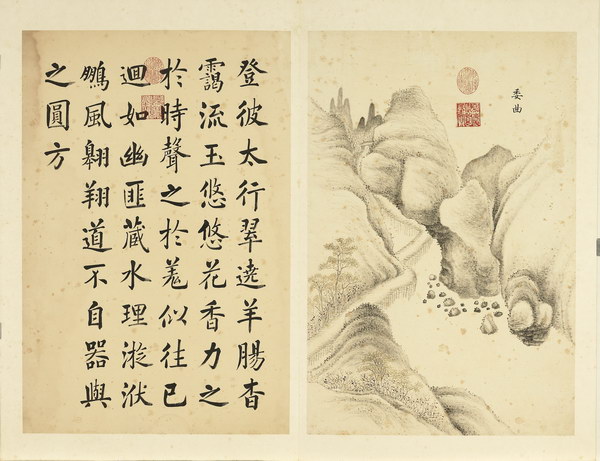 委曲
登彼太行翠遶羊腸杳
靄流玉悠悠花香力之
於時聲之於羌似往已
迴如幽匪藏水理漩洑
鵬風翱翔道不自器與
之圓方